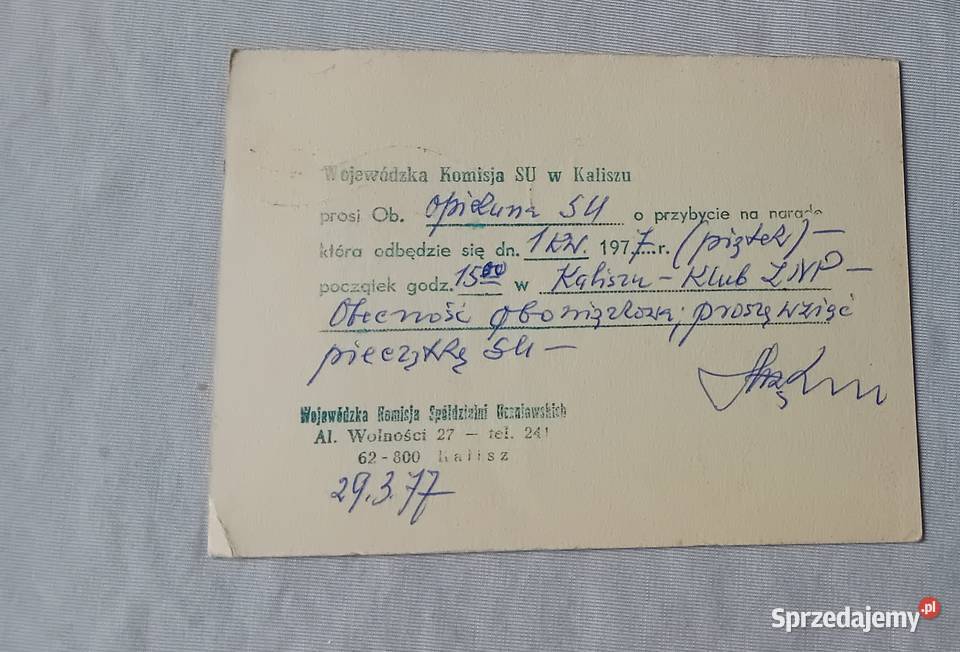 Wojewódzka Komisja SU w Kaliszu
prosi Ob. Opiekuna SU o przybycie na naradę
która odbędzie się dn. 1 kw. 1977 r. (piątek) –
początek godz. 15⁰⁰ w Kaliszu – Klub ZNP –
Obecność obowiązkowa; proszę wziąć
pieczątkę SU –
Wojewódzka Komisja Spółdzielni Uczniowskich
Al. Wolności 27 – tel. 241
62-800 Kalisz
29.3.77
Sprzedajemy.pl